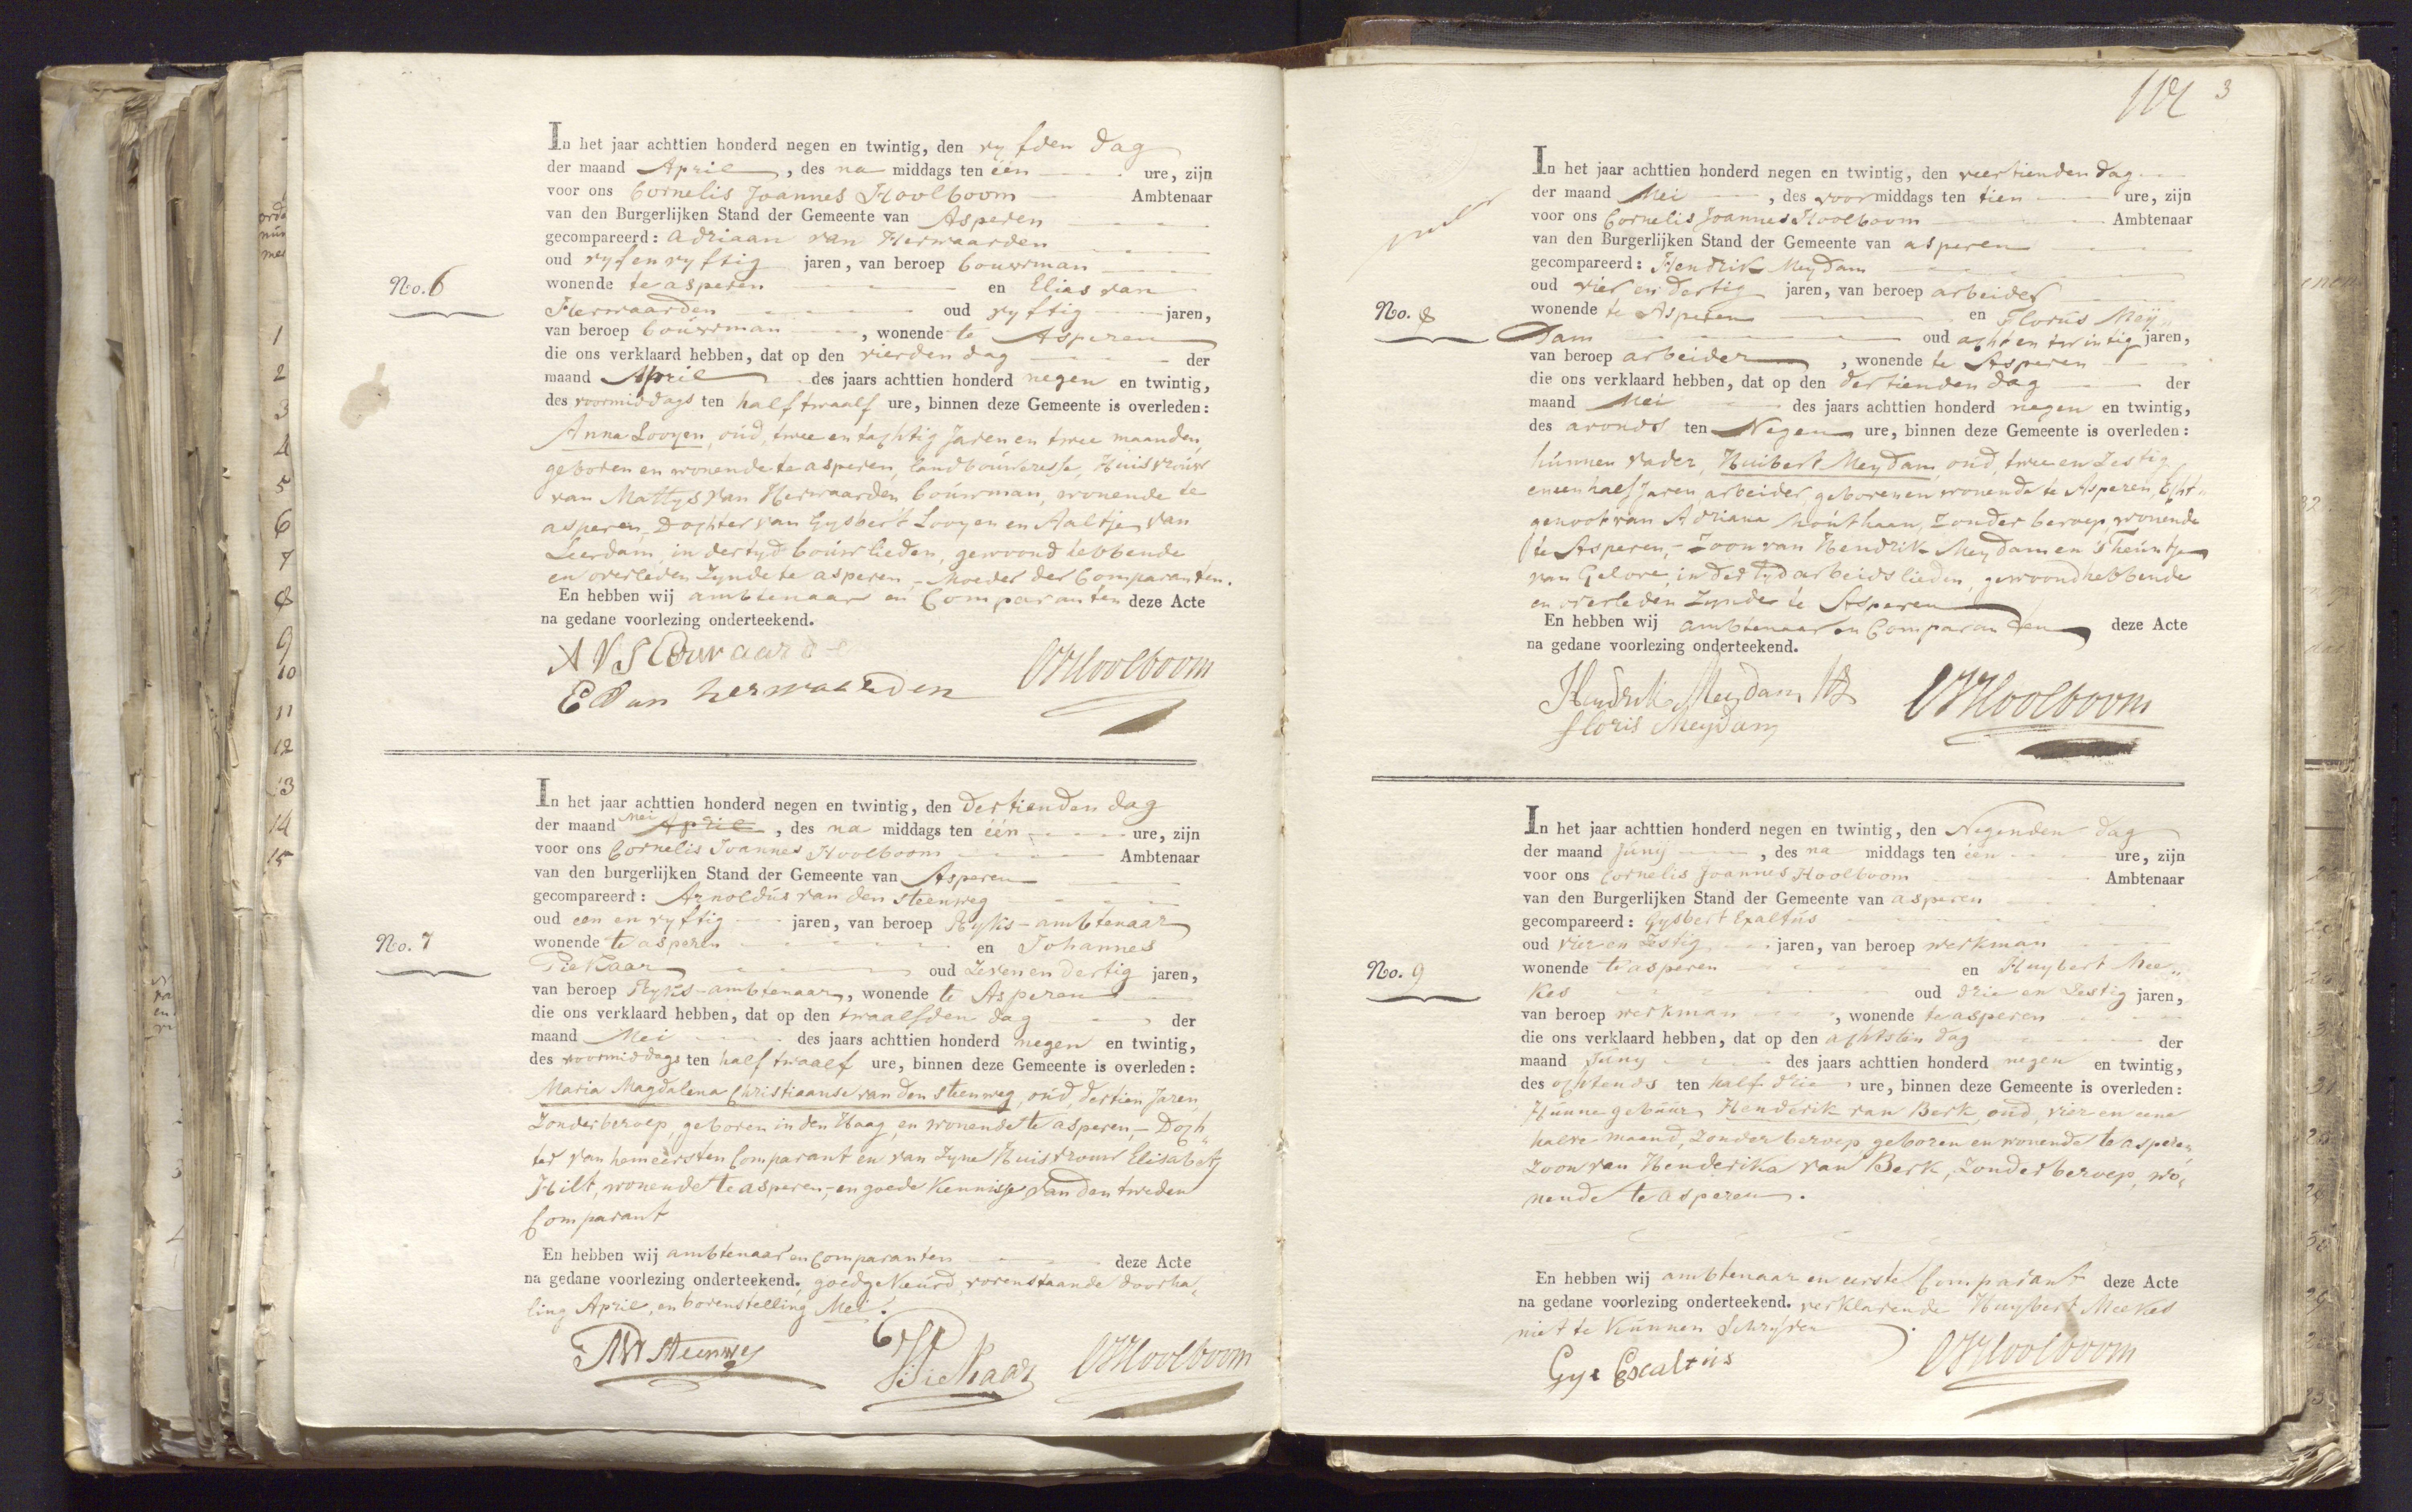 In het jaar achttien honderd negen en twintig, den vyfden dag
der maand April, des na middags ten één ure, zijn
voor ons Cornelis Joannes Hoolboom Ambtenaar
van den Burgerlijken Stand der Gemeente van Asperen
gecompareerd: Adriaan van Herwaarden
oud vyf en vyftig jaren, van beroep bouwman
No. 6
wonende te asperen en Elias van
Herwaarden oud vyftig jaren,
van beroep bouwman, wonende te Asperen
die ons verklaard hebben, dat op den vierden dag der
maand April des jaars achttien honderd negen en twintig,
des voormiddags ten half twaalf ure, binnen deze Gemeente is overleden:
Anna Looyen, oud, twee en tachtig Jaren en twee maanden,
geboren en wonende te asperen, landbouweresse, Huisvrouw
van Mattys van Herwaarden, bouwman, wonende te
asperen, - Dochter van Gysbert Looyen en Aaltje van
Leerdam, in der tyd bouwlieden, gewoond hebbende
en overleden Zynde te asperen - Moeder der Comparanten.
En hebben wij ambtenaar en Comparanten deze Acte
na gedane voorlezing onderteekend.
E Van herwaarden
CJHoolboom
In het jaar achttien honderd negen en twintig, den dertienden dag
der maand Mei April, des na middags ten één ure, zijn
voor ons Cornelis Joannes Hoolboom Ambtenaar
van den burgerlijken Stand der Gemeente van Asperen
gecompareerd: Arnoldus van den Steenweg
oud een en vyftig jaren, van beroep Ryks-ambtenaar
No. 7
wonende te asperen en Johannes
Piekaar oud Zeven en dertig jaren,
van beroep Ryks-ambtenaar, wonende te Asperen
die ons verklaard hebben, dat op den twaalfden dag der
maand Mei des jaars achttien honderd negen en twintig,
des voormiddags ten half twaalf ure, binnen deze Gemeente is overleden:
Maria Magdalena Christiaanse van den Steenweg, oud, dertien Jaren,
Zonder beroep, geboren in den Haag, en wonende te asperen, - Doch„
ter van hem eersten Comparant en van Zyne Huisvrouw Elisabeth
Hilt, wonende te asperen, - en goede Kennisse van den tweden
Comparant
En hebben wij ambtenaar en Comparanten deze Acte
na gedane voorlezing onderteekend, goedgekeurd, vorenstaande doorha„
ling April, en bovenstelling Mei.
Piekaar
CJHoolboom
3
In het jaar achttien honderd negen en twintig, den veertienden dag
der maand Mei, des voor middags ten tien ure, zijn
voor ons Cornelis Joannes Hoolboom Ambtenaar
van den Burgerlijken Stand der Gemeente van asperen
gecompareerd: Hendrik Meydam
oud vier en dertig jaren, van beroep arbeider
No. 8
wonende te Asperen en Florus Meÿ„
Dam oud acht en twintig jaren,
van beroep arbeider, wonende te Asperen
die ons verklaard hebben, dat op den dertienden dag der
maand Mei des jaars achttien honderd negen en twintig,
des avonds ten Negen ure, binnen deze Gemeente is overleden:
hunnen vader, Huibert Meydam, oud, twee en Zestig
en een half Jaren, arbeider, geboren en wonende te Asperen, Echt„
genoot van Adriana Houthaan, Zonder beroep, wonende
te Asperen, - Zoon van Hendrik Meydam en Theuntje
van Gelove, in der tyd arbeidslieden, gewoond hebbende
en overleden Zynde te Asperen
En hebben wij ambtenaar en Comparanten deze Acte
na gedane voorlezing onderteekend.
Hendrik Meydam Hz
floris Meydam
CJHoolboom
In het jaar achttien honderd negen en twintig, den Negenden dag
der maand Juny, des na middags ten één ure, zijn
voor ons Cornelis Joannes Hoolboom Ambtenaar
van den Burgerlijken Stand der Gemeente van asperen
gecompareerd: Gysbert Exaltus
oud vier en Zestig jaren, van beroep werkman
No. 9
wonende te asperen en Huybert Mee„
kes oud drie en Zestig jaren,
van beroep werkman, wonende te asperen
die ons verklaard hebben, dat op den achtsten dag der
maand Juny des jaars achttien honderd negen en twintig,
des ochtends ten half drie ure, binnen deze Gemeente is overleden:
Hunne gebuur, Henderik van Berk, oud, vier en eene
halve maand, Zonder beroep, geboren en wonende te asperen,
Zoon van Henderika van Berk, Zonder beroep, wo„
nende te asperen.
En hebben wij ambtenaar en eerste Comparant deze Acte
na gedane voorlezing onderteekend. verklarende Huybert Meekes
niet te Kunnen Schryven
CJHoolboom
1
2
3
4
5
6
7
8
9
10
11
12
13
14
15